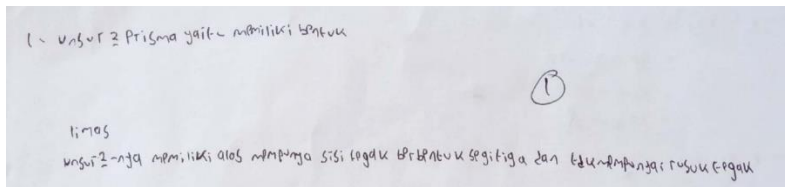 1. unsur2 Prisma yaitu memiliki bentuk
1
limas
unsur2-nya memiliki alas mempunya sisi tegak berbentuk segitiga dan tdk mempunyai rusuk tegak